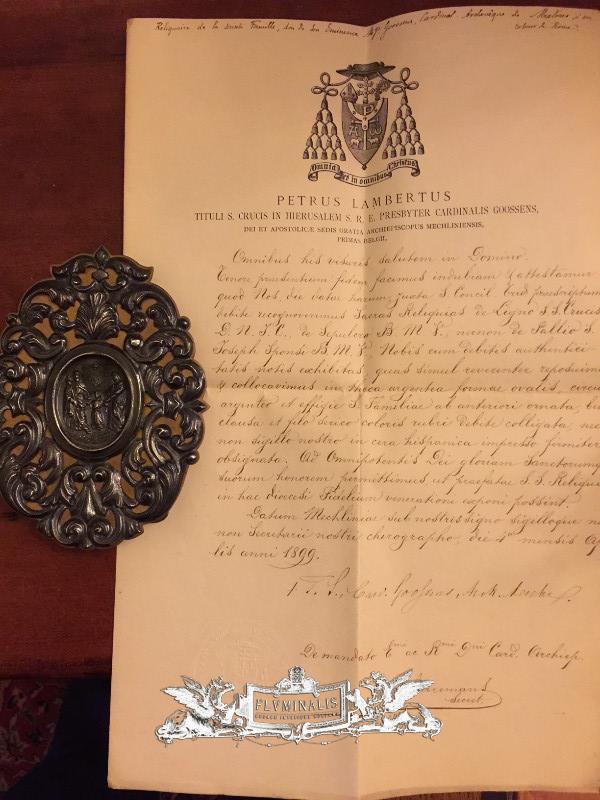 Reliquaire de la Sainte Famille, don de Son Eminence Mgr Goossens, Cardinal Archevêque de Malines
retour de Rome
Omnia et in omnibus Christus
PETRUS LAMBERTUS
TITULI S. CRUCIS IN HIERUSALEM S. R. E. PRESBYTER CARDINALIS GOOSSENS,
DEI ET APOSTOLICÆ SEDIS GRATIA ARCHIEPISCOPUS MECHLINIENSIS,
PRIMAS BELGII,
Omnibus has visuris salutem in Domino.
Tenore præsentium fidem facimus indubiam & attestamur
quod Nos, die datæ harum, juxta S. Concil. Trid. præscriptum
debite recognovimus Sacras Reliquias de Ligno S.S. Crucis
D. N. J. C., de Sepulcro B. M. V., necnon de Pallio S.
Joseph Sponsi B. M. V. Nobis cum debitis authentici-
tatis notis exhibitas, quas simul reverenter reposuimus
& collocavimus in theca argentea formæ ovalis, circulo
argenteo et effigie S. Familiae ab anteriori ornata, bene
clausa et filo serico coloris rubri debite colligata, nec
non sigillo nostro in cera hispanica impresso firmiter
obsignata. Ad Omnipotentis Dei gloriam Sanctorumque
suorum honorem permittimus ut praefatae S. S. Reliquiae
in hac Dioecesi Fidelium venerationi exponi possint.
Datum Mechliniae sub nostris signo sigilloque nec
non Secretarii nostri chirographo, die 4ª mensis Apri-
lis anni 1899.
Card. Goossens, Arch.
De mandato Emi ac Rmi Dni Card. Archiep.
Secret.
FLVMINALIS